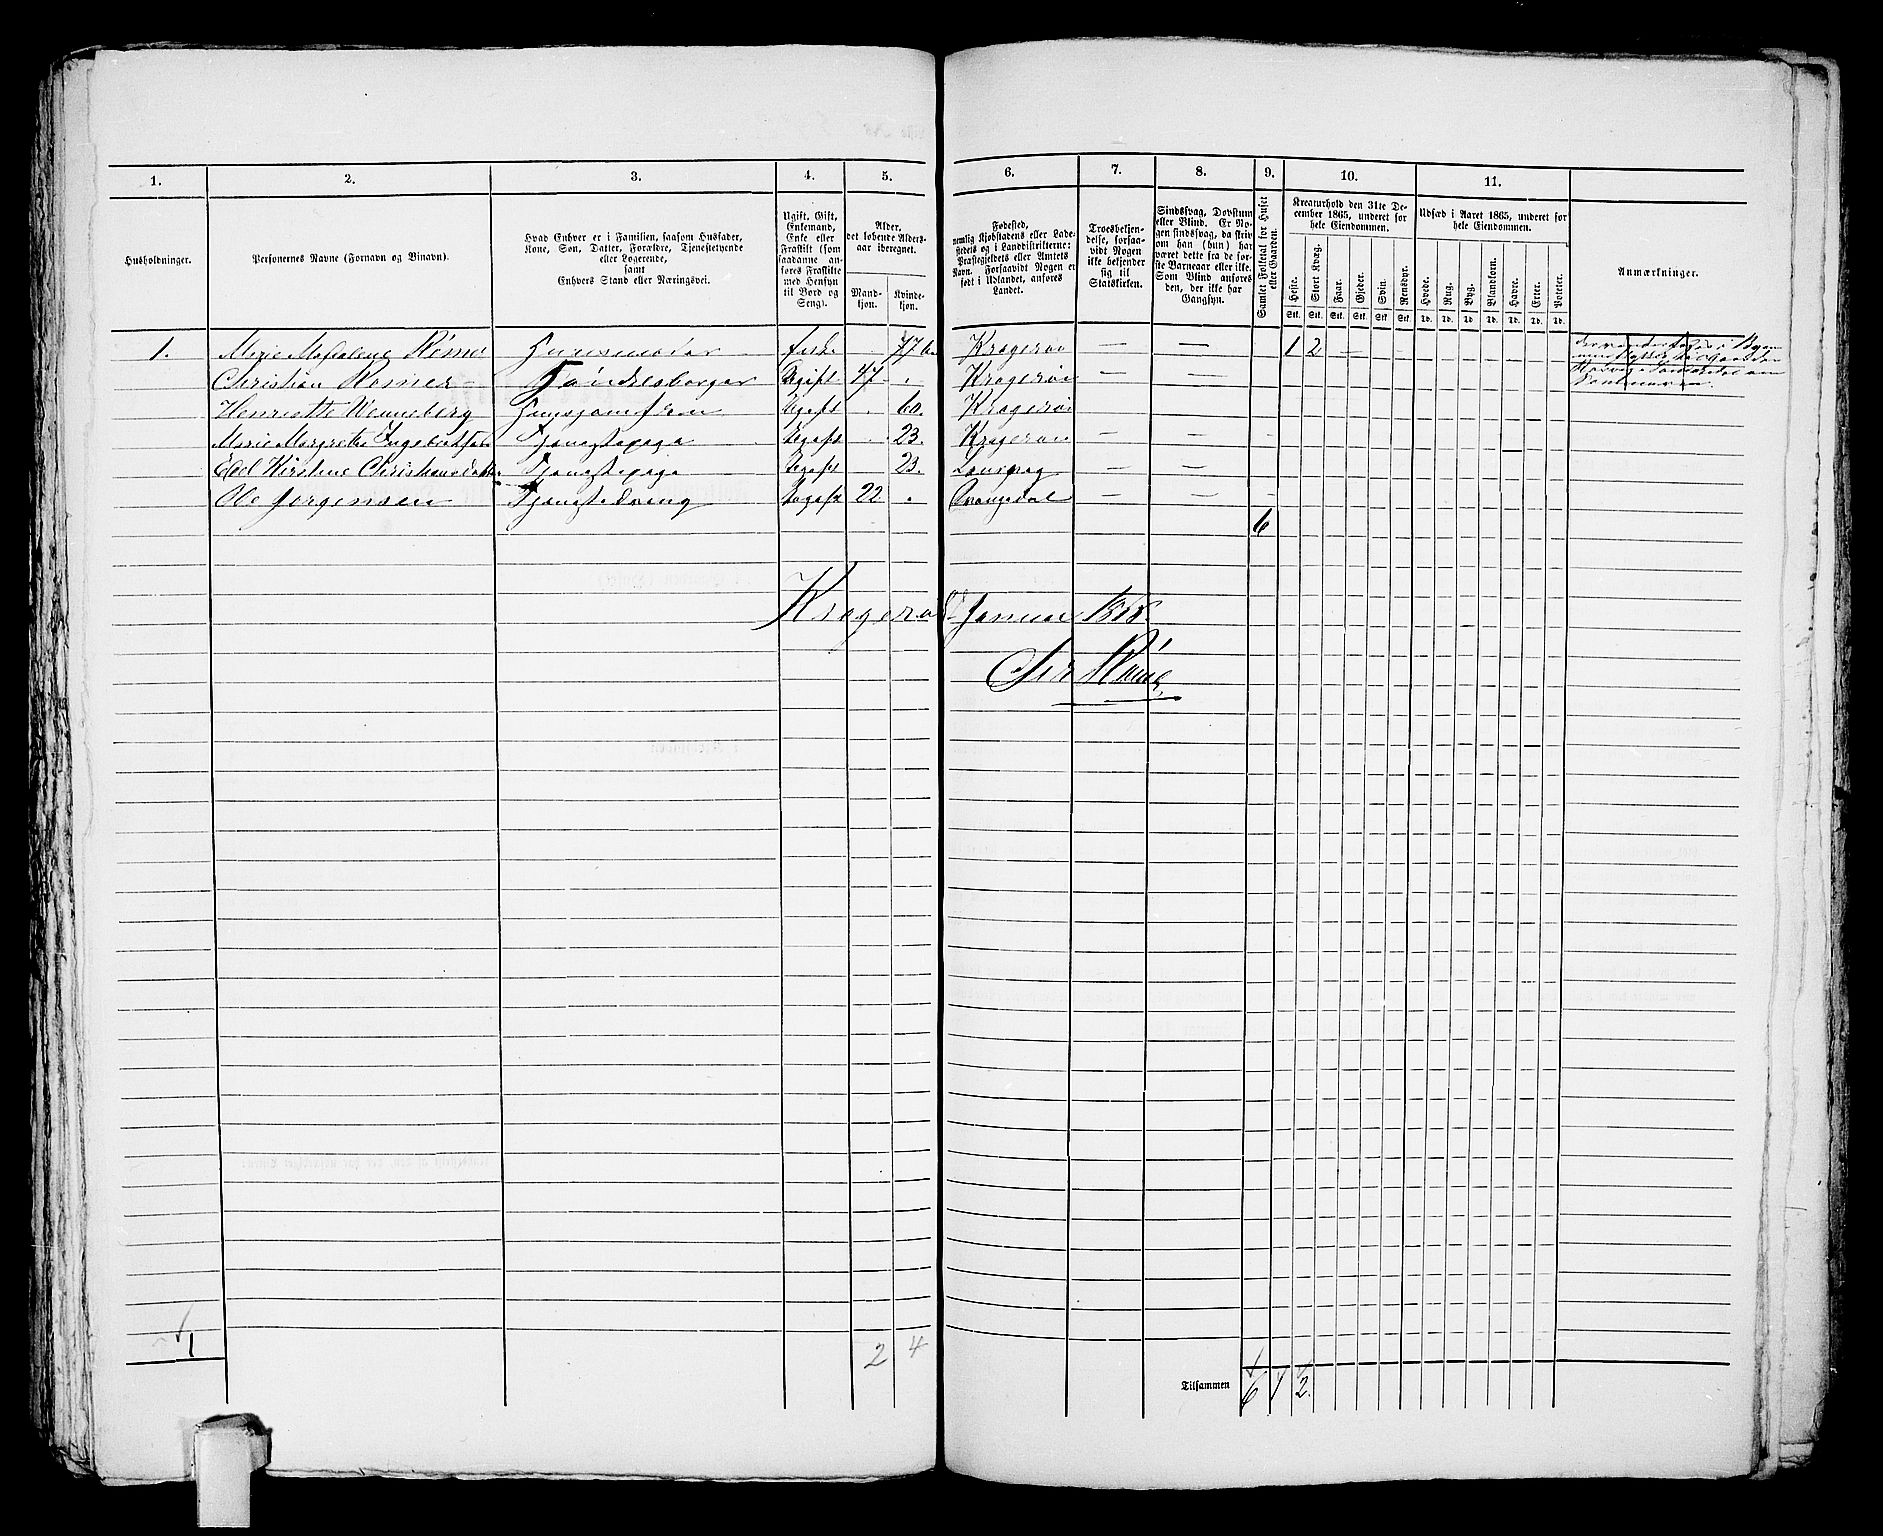 1. 2. 3. 4. 5. 6. 7. 8. 9. 10. 11.
Husholdninger.
Personernes Navne (Fornavn og Binavn).
Hvad Enhver er i Familien, saasom Husfader,
Kone, Søn, Datter, Forældre, Tjenestetyende
eller Logerende,
samt
Enhvers Stand eller Næringsvei.
Ugift, Gift,
Enkemand,
Enke eller
Fraskilt (som
saadanne an-
føres Fraskilte
med Hensyn
til Bord og
Seng).
Alder,
det løbende Alders-
aar iberegnet.
Mand-
kjøn.
Kvinde-
kjøn.
Fødested,
nemlig Kjøbstadens eller Lade-
stedets og i Landdistrikterne:
Præstegjeldets eller Amtets
Navn. Forsaavidt Nogen er
født i Udlandet, anføres
Landet.
Troesbekjen-
delse, forsaa-
vidt Nogen
ikke bekjender
sig til
Statskirken.
Sindssvag, Døvstum
eller Blind. Er No-
gen sindssvag, da skriv
om han (hun) har
været dette fra de før-
ste Barneaar eller ikke.
Som Blind anføres
den, der ikke har
Gangsyn.
Samlet Folketal for Huset
eller Gaarden.
Kreaturhold den 31te De-
cember 1865, underet for
hele Eiendommen.
Heste. Stort Kvæg. Faar. Gjeder. Svin. Rensdyr.
Stk. Stk. Stk. Stk. Stk. Stk.
Udsæd i Aaret 1865, underet for
hele Eiendommen.
Hvede. Rug. Byg. Blandkorn. Havre. Erter. Poteter.
Td. Td. Td. Td. Td. Td. Td.
Anmærkninger.
1. Marie Magdalene Rømer Huusmoder Enke 77 Kragerøe — — 1 2 —
Christian Rømer Handelsborger Ugift 47 Kragerøe — —
Henriette Wenneberg Huusjomfru Ugift 60. Kragerøe — —
Marie Margrethe Ingebretsen Tjenestepige Ugift 23. Kragerøe — —
Kirstine Christiansdatter Tjenestepige Ugift 23. — —
Ole Jørgensen Tjenestedreng Ugift 22 Drangedal — —
6
Kragerø Januar
1
2 4
Tilsammen 6 1 2.